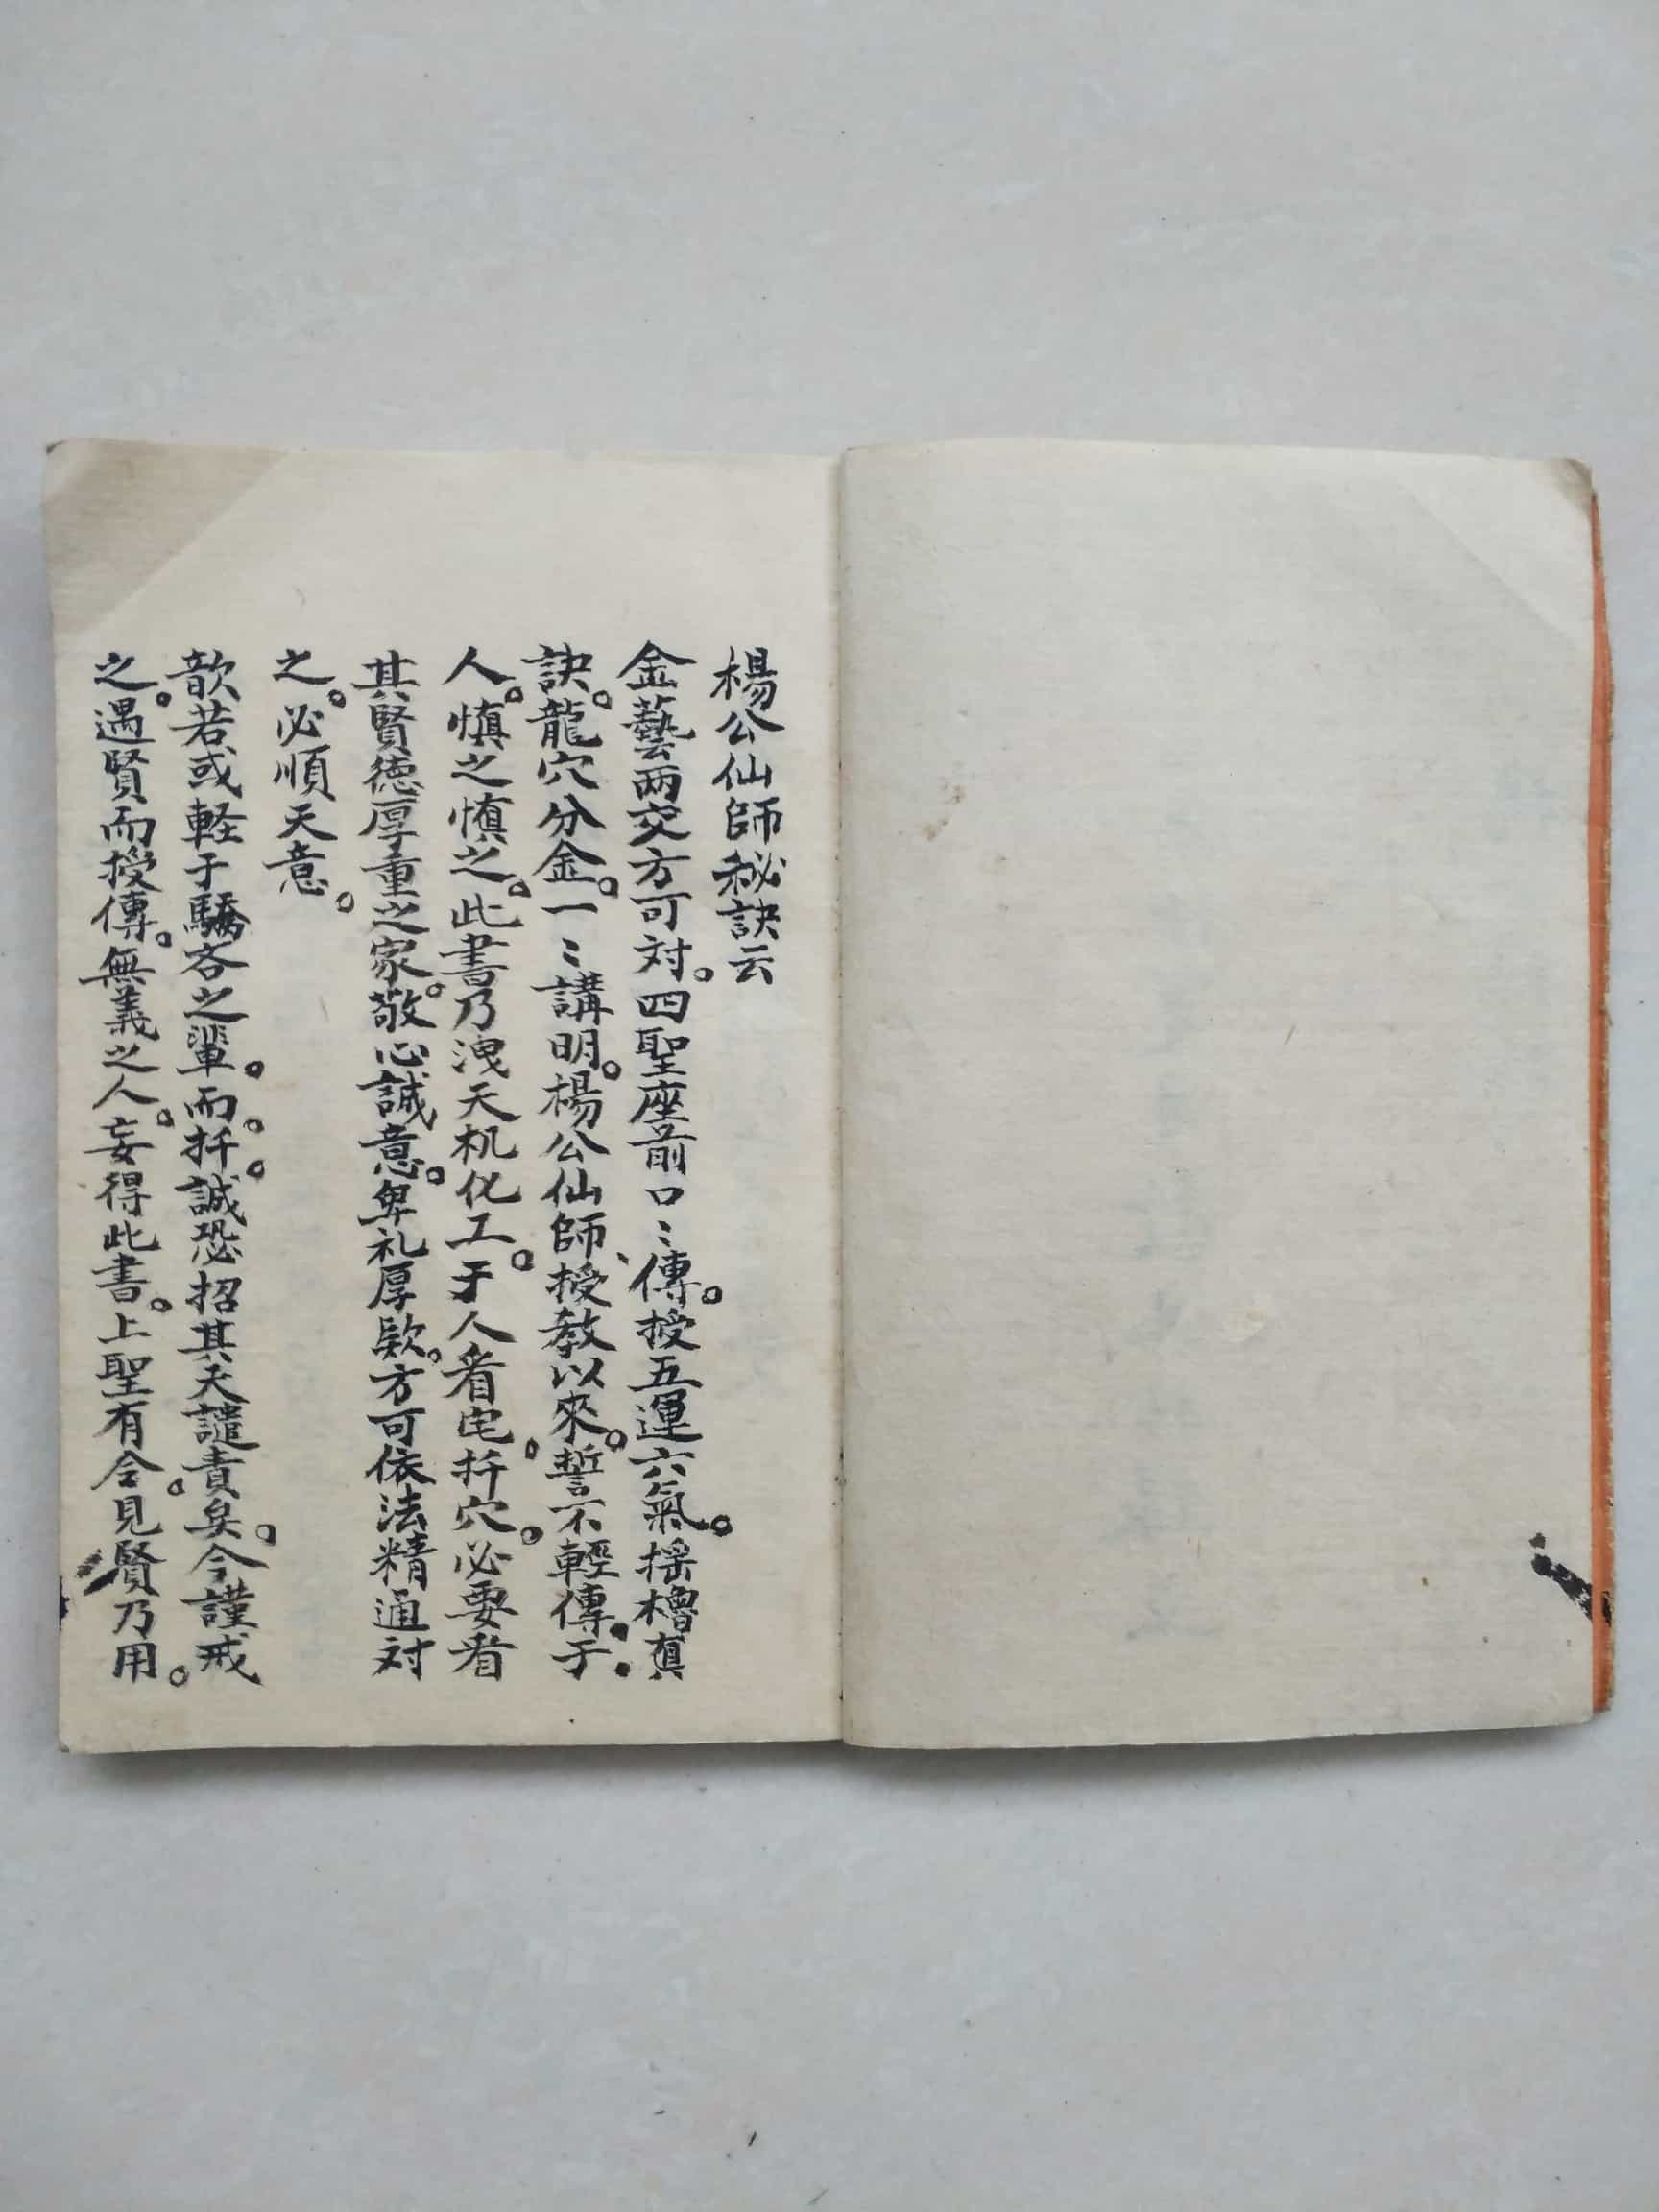 楊公仙師秘訣云
金藝两交方可对。四聖座前口〻傳。授五運六氣。摇櫓真
訣。龍穴分金。一〻講明。楊公仙師、授教以來。誓不輕傳于
人。慎之慎之。此書乃洩天机化工。于人看宅。扦穴。必要看
其賢德厚重之家。敬心誠意。卑礼厚欵。方可依法精通对
之。必順天意。
歆若或軽于驕吝之輩。而。扦。誠恐招其天譴責矣。今謹戒
之。遇賢而授傳。無義之人。妄得此書。上聖有令。見賢乃用。